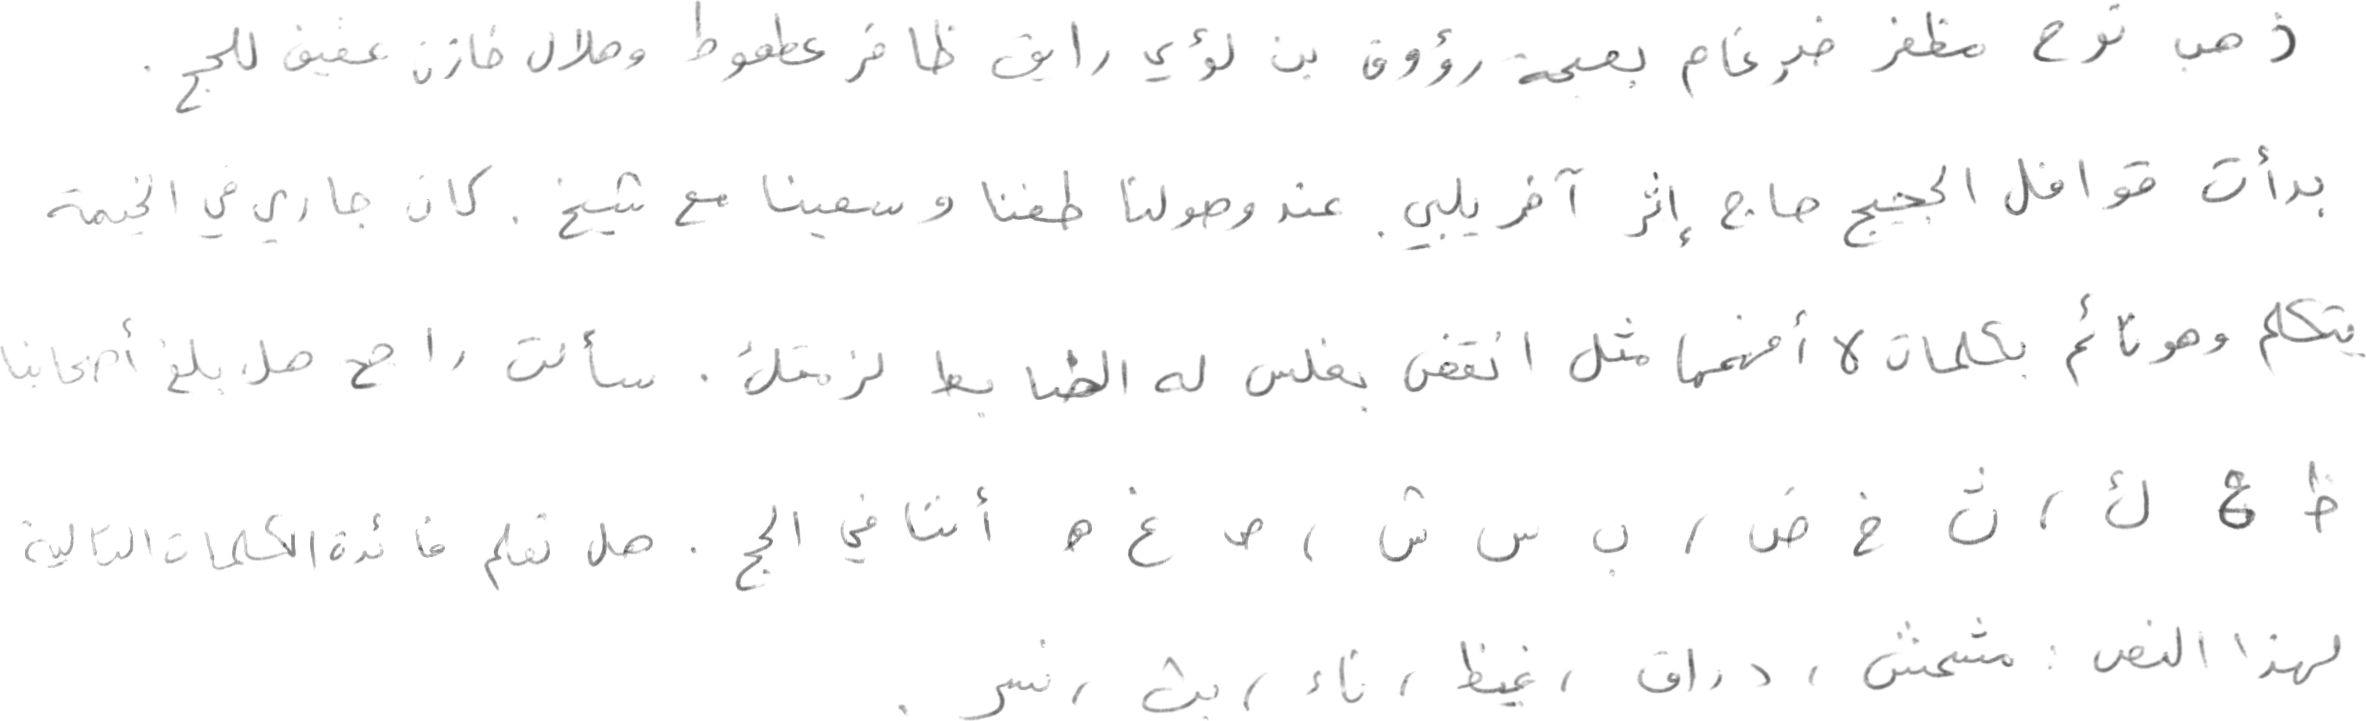 ذهب نوح مظفر ضرغام بصحبة رؤوف بن لؤي رايق ظافر عطعوط وهلال خازن عفيف للحج .
بدأت قوافل الحجيج حاج إثر آخر يلبي . عند وصولنا طفنا وسعينا مع شيخ . كان جاري في الخيمة
يتكلم وهو نائم بكلمات لا أفهمها مثل انقض بغلس له الضابط لزمتك . سألت راجح هل بلغ أصحابنا
ظ ع ك ، ث خ ض ، ب س ش ، ص غ ه أننا في الحج . هل تعلم فائدة الكلمات التالية
لهذا النص : مشمش ، دراق ، غيظ ، ناء ، بث ، نسر .